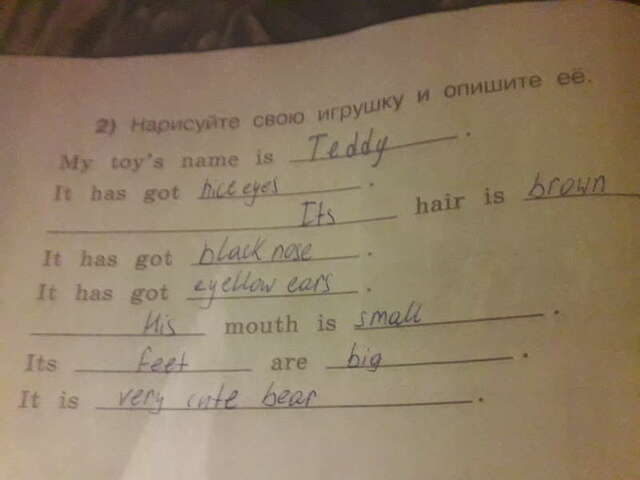 2) Нарисуйте свою игрушку и опишите её.
My toy's name is Teddy.
It has got nice eyes.
Its hair is brown
It has got black nose.
It has got eyellow ears.
His mouth is small.
Its feet are big.
It is very cute bear.